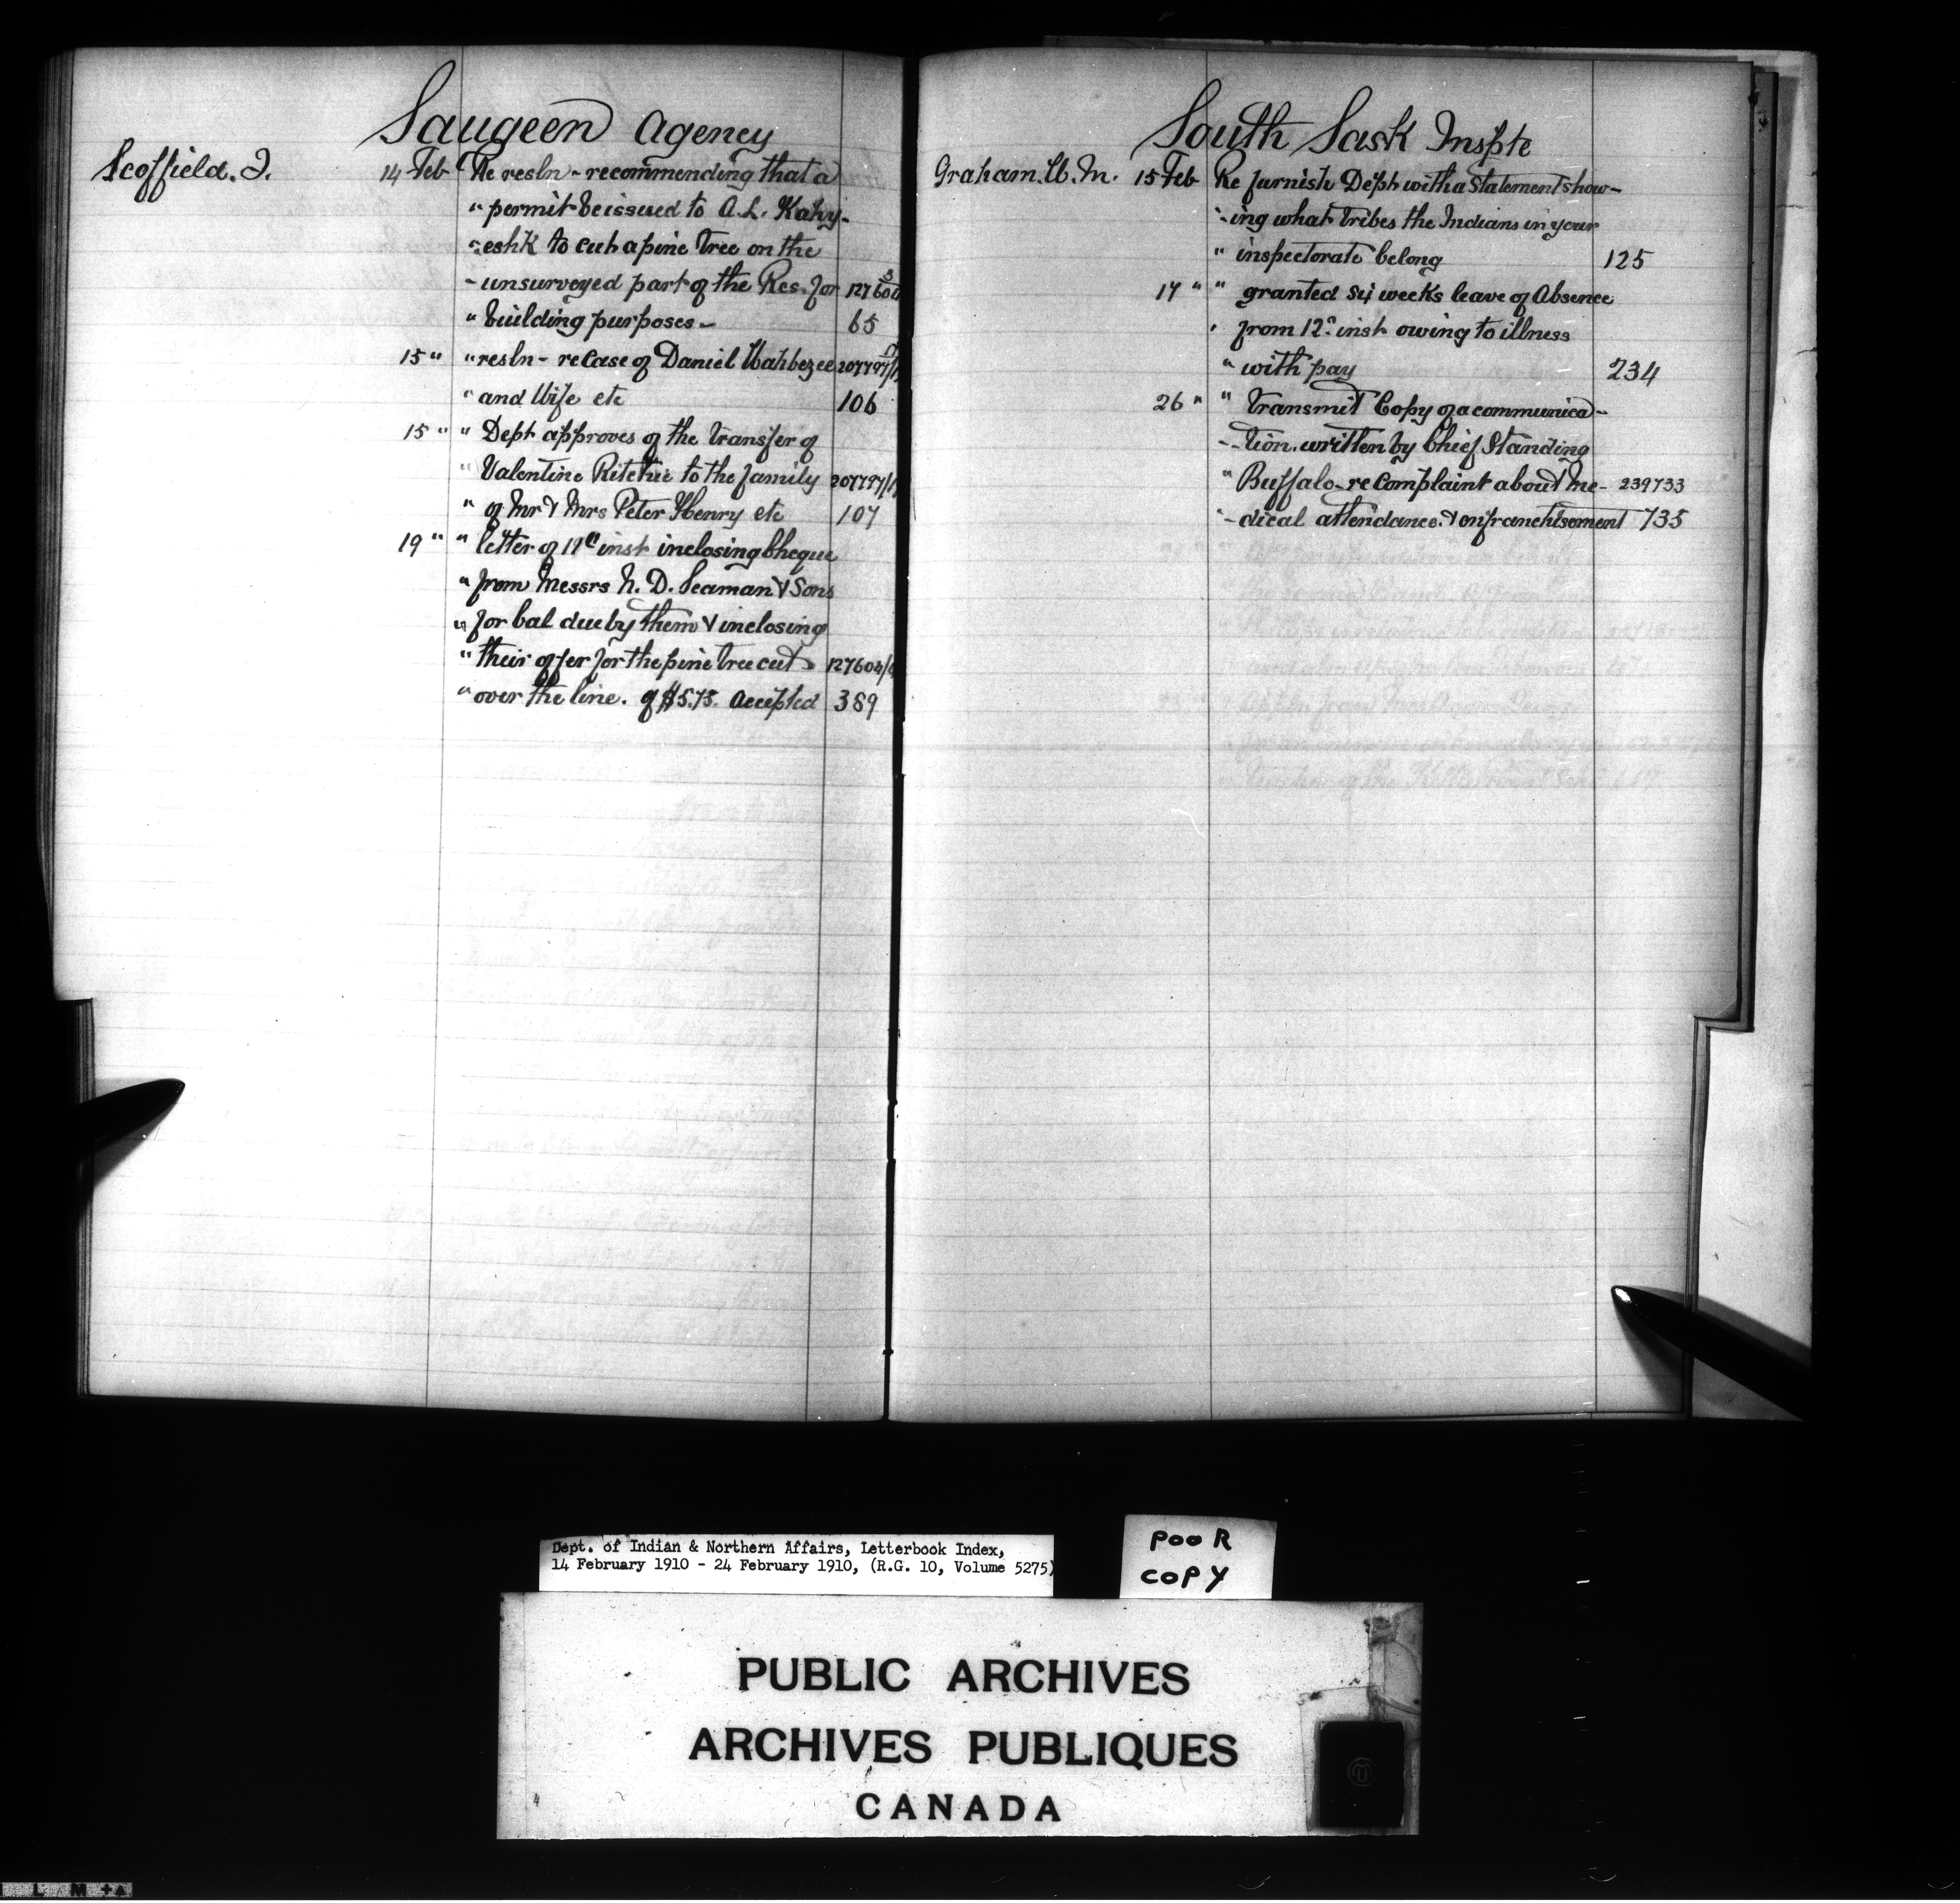 Saugeen Agency
Scoffield. J. 14 Feb Re resln - recommending that a
" permit be issued to A. L. Kahy-
" eshk to cut a pine tree on the
- unsurveyed part of the Res. for 127604
" building purposes - 65
15 " " resln - re Case of Daniel Wahbezee 207797/
" and Wife etc 106
15 " " Dept approves of the transfer of
" Valentine Ritchie to the family 207797/
" of Mr & Mrs Peter Henry etc 107
19 " " letter of inst inclosing Cheque
" from Messrs N. D. Seaman & Sons
" for bal due by them & inclosing
" their offer for the pine tree cut 127604/
" over the line. of $5.75. accepted 389
South Sask Inspte
Graham. W. M. 15 Feb Re furnish Dept with a Statement show-
- ing what tribes the Indians in your
" inspectorate belong 125
17 " " granted six weeks leave of Absence
" from 12 inst owing to illness
" with pay 234
26 " " transmit Copy of a communica-
- tion. written by Chief Standing
" Buffalo - re complaint about me- 239733
- dical attendance & enfranchisement 735
Dept. of Indian & Northern Affairs, Letterbook Index,
14 February 1910 - 24 February 1910, (R.G. 10, Volume 5275)
POOR
COPY
PUBLIC ARCHIVES
ARCHIVES PUBLIQUES
CANADA